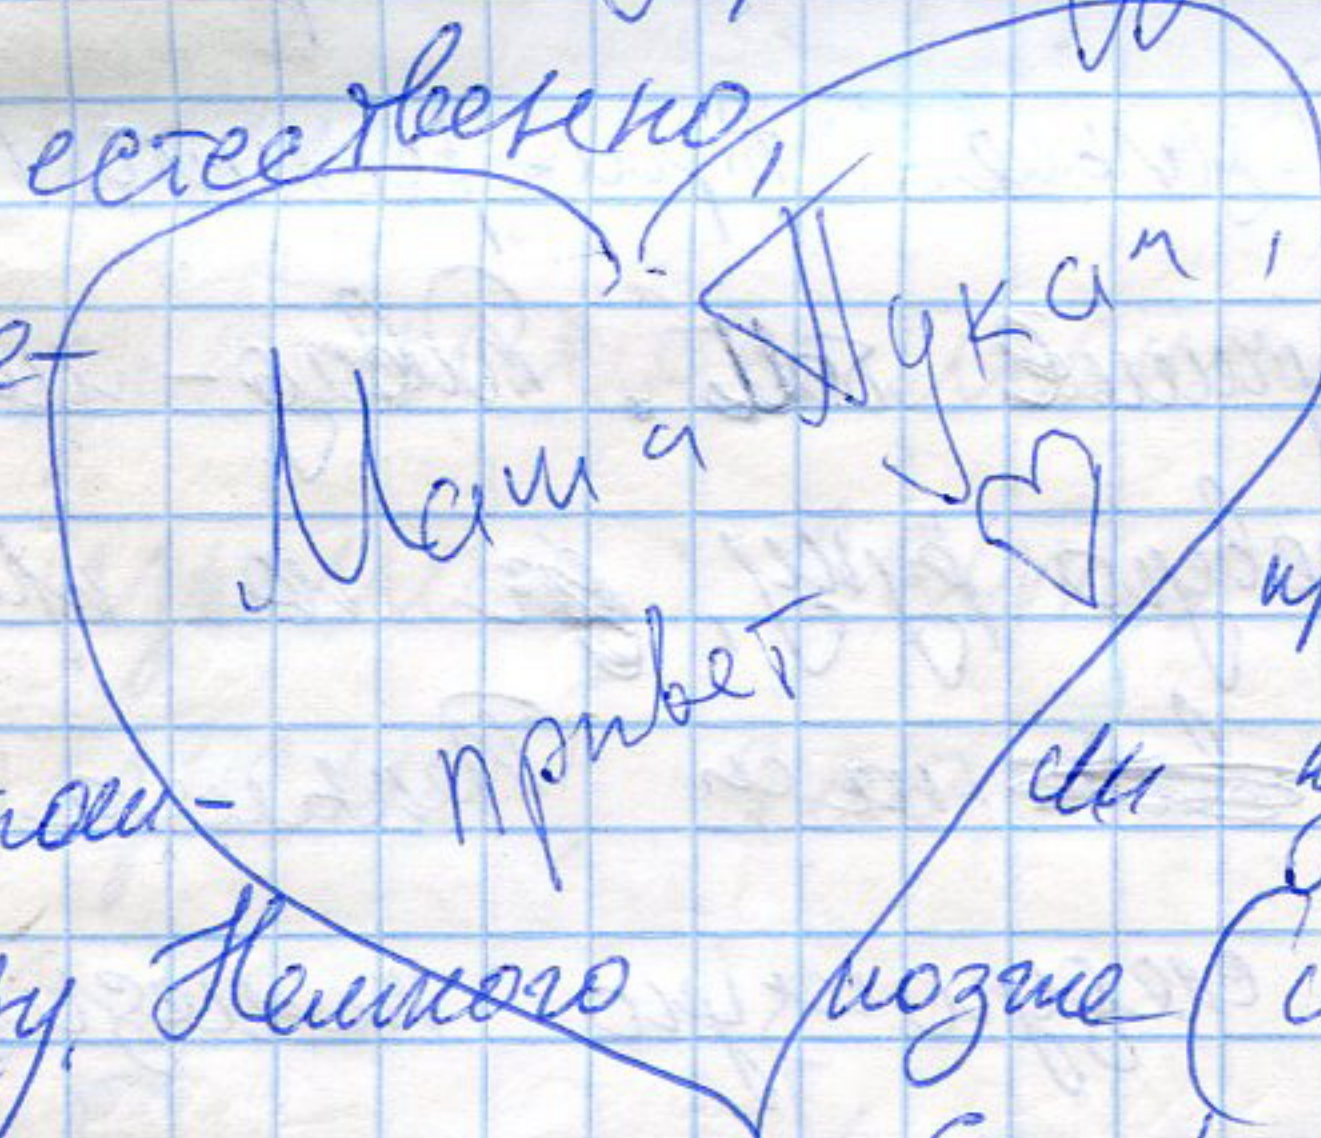 естественно
Маша Пукан,
привет
Немного позже